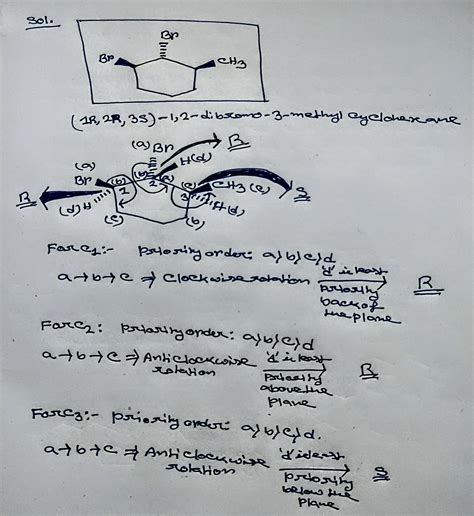 Sol.
Br
Br
CH3
(1R, 2R, 3S)-1,2-dibromo-3-methyl cyclohexane
(a) Br
R
H(d)
(a)
Br
(b)
(b)
(a)
(c)
CH3 (c)
R
(d) H
1
2
3
S
H(d)
(c)
(b)
For C1:- Priority order: a/b/c/d
a→b→c ⇒ Clockwise rotation 'd' is least priority back of the plane R
For C2: Priority order: a/b/c/d
a→b→c ⇒ Anticlockwise rotation 'd' is least priority above the plane R
For C3:- Priority order: a/b/c/d.
a→b→c ⇒ Anticlockwise rotation 'd' is least priority below the plane S